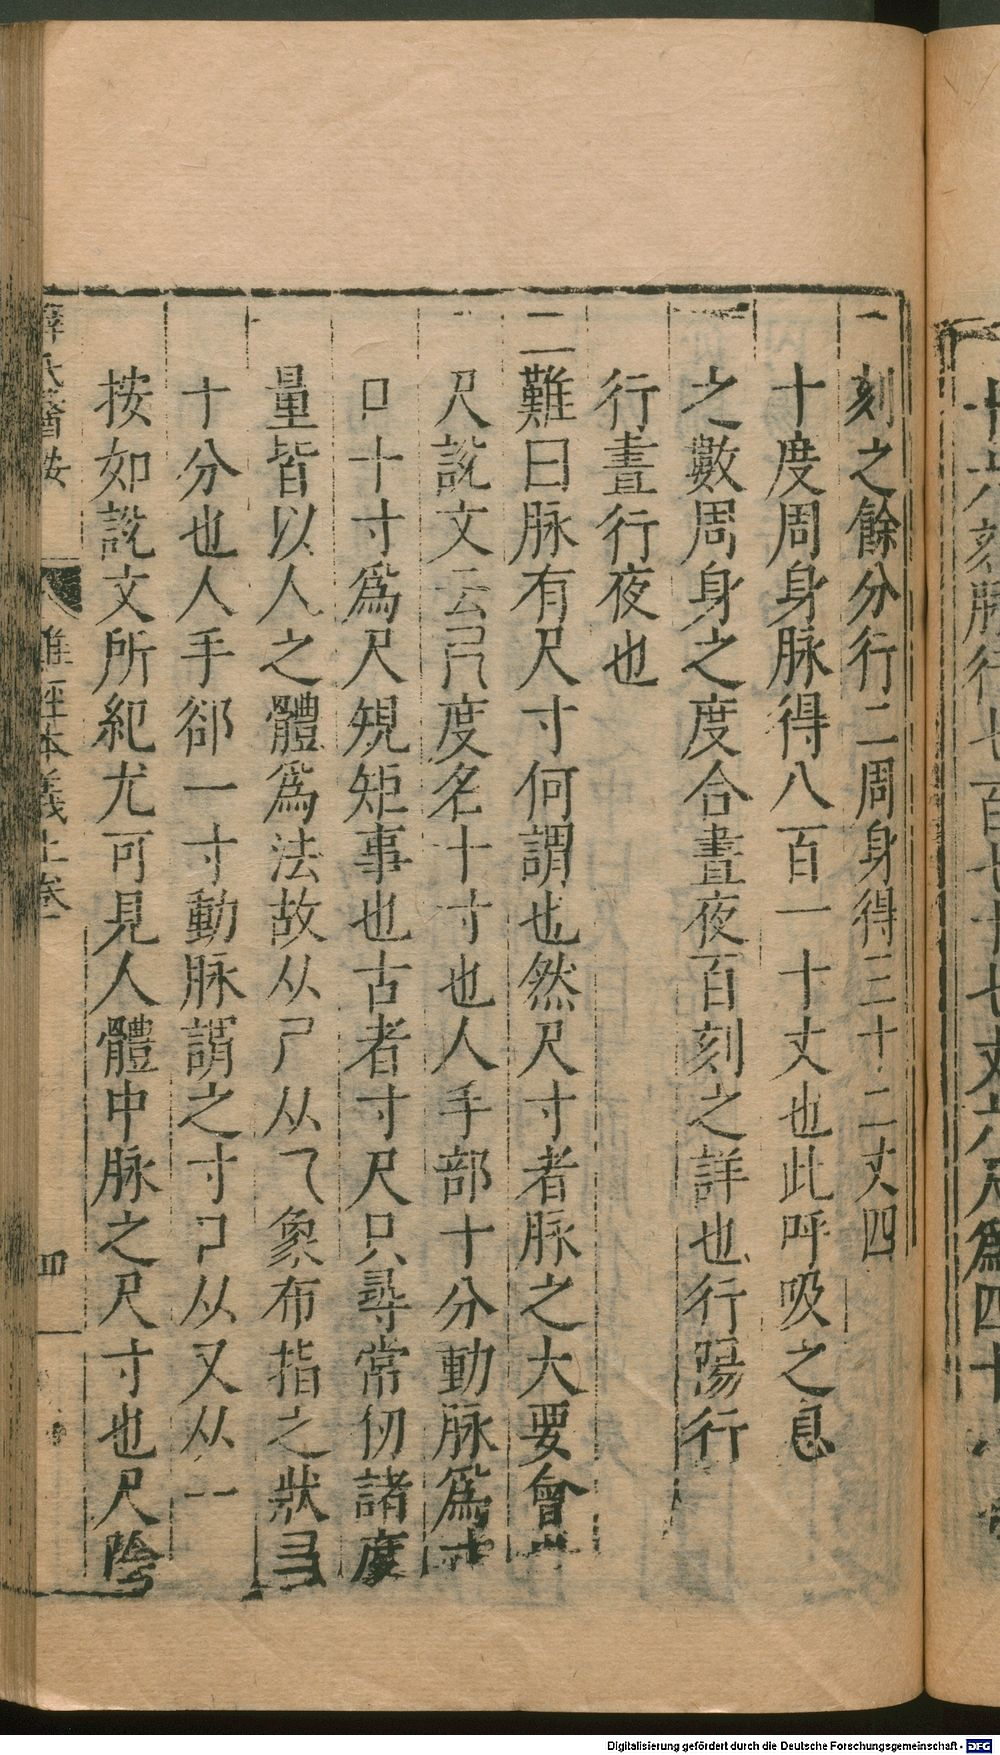 刻之餘分行二周身得三十二丈四
十度周身脉得八百一十丈也此呼吸之息
之數周身之度合晝夜百刻之詳也行陽行
行晝行夜也
二難曰脉有尺寸何謂也然尺寸者脉之大要會
尺說文云度名十寸也人手部十分動脉爲寸
口十寸爲尺規矩事也古者寸尺只尋常仞諸度
量皆以人之體爲法故从尸从乁象布指之狀
十分也人手郤一寸動脉謂之寸口从又从一
按如說文所紀尤可見人體中脉之尺寸也尺陰
難經本義上卷
四
Digitalisierung gefördert durch die Deutsche Forschungsgemeinschaft - DFG